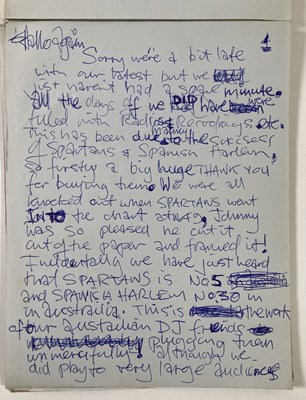 Hallo again 1
Sorry we're a bit late
with our latest but we
just havent had a spare minute.
All the days off we DID have were
filled with Radio, Recordings etc.
This has been due mainly to the success
of Spartans & Spanish Harlem,
So firstly a big huge THANK YOU
for buying them. We were all
knocked out when SPARTANS went
INTO the chart at No40, Johnny
was so pleased he cut it
out of the paper and framed it!
Incidentally we have just heard
that SPARTANS is No5
and SPANISH HARLEM No30 in
in australia. This is the work
of our austailian DJ friends
plugging them
unmercifully! although we
did play to very large audiences